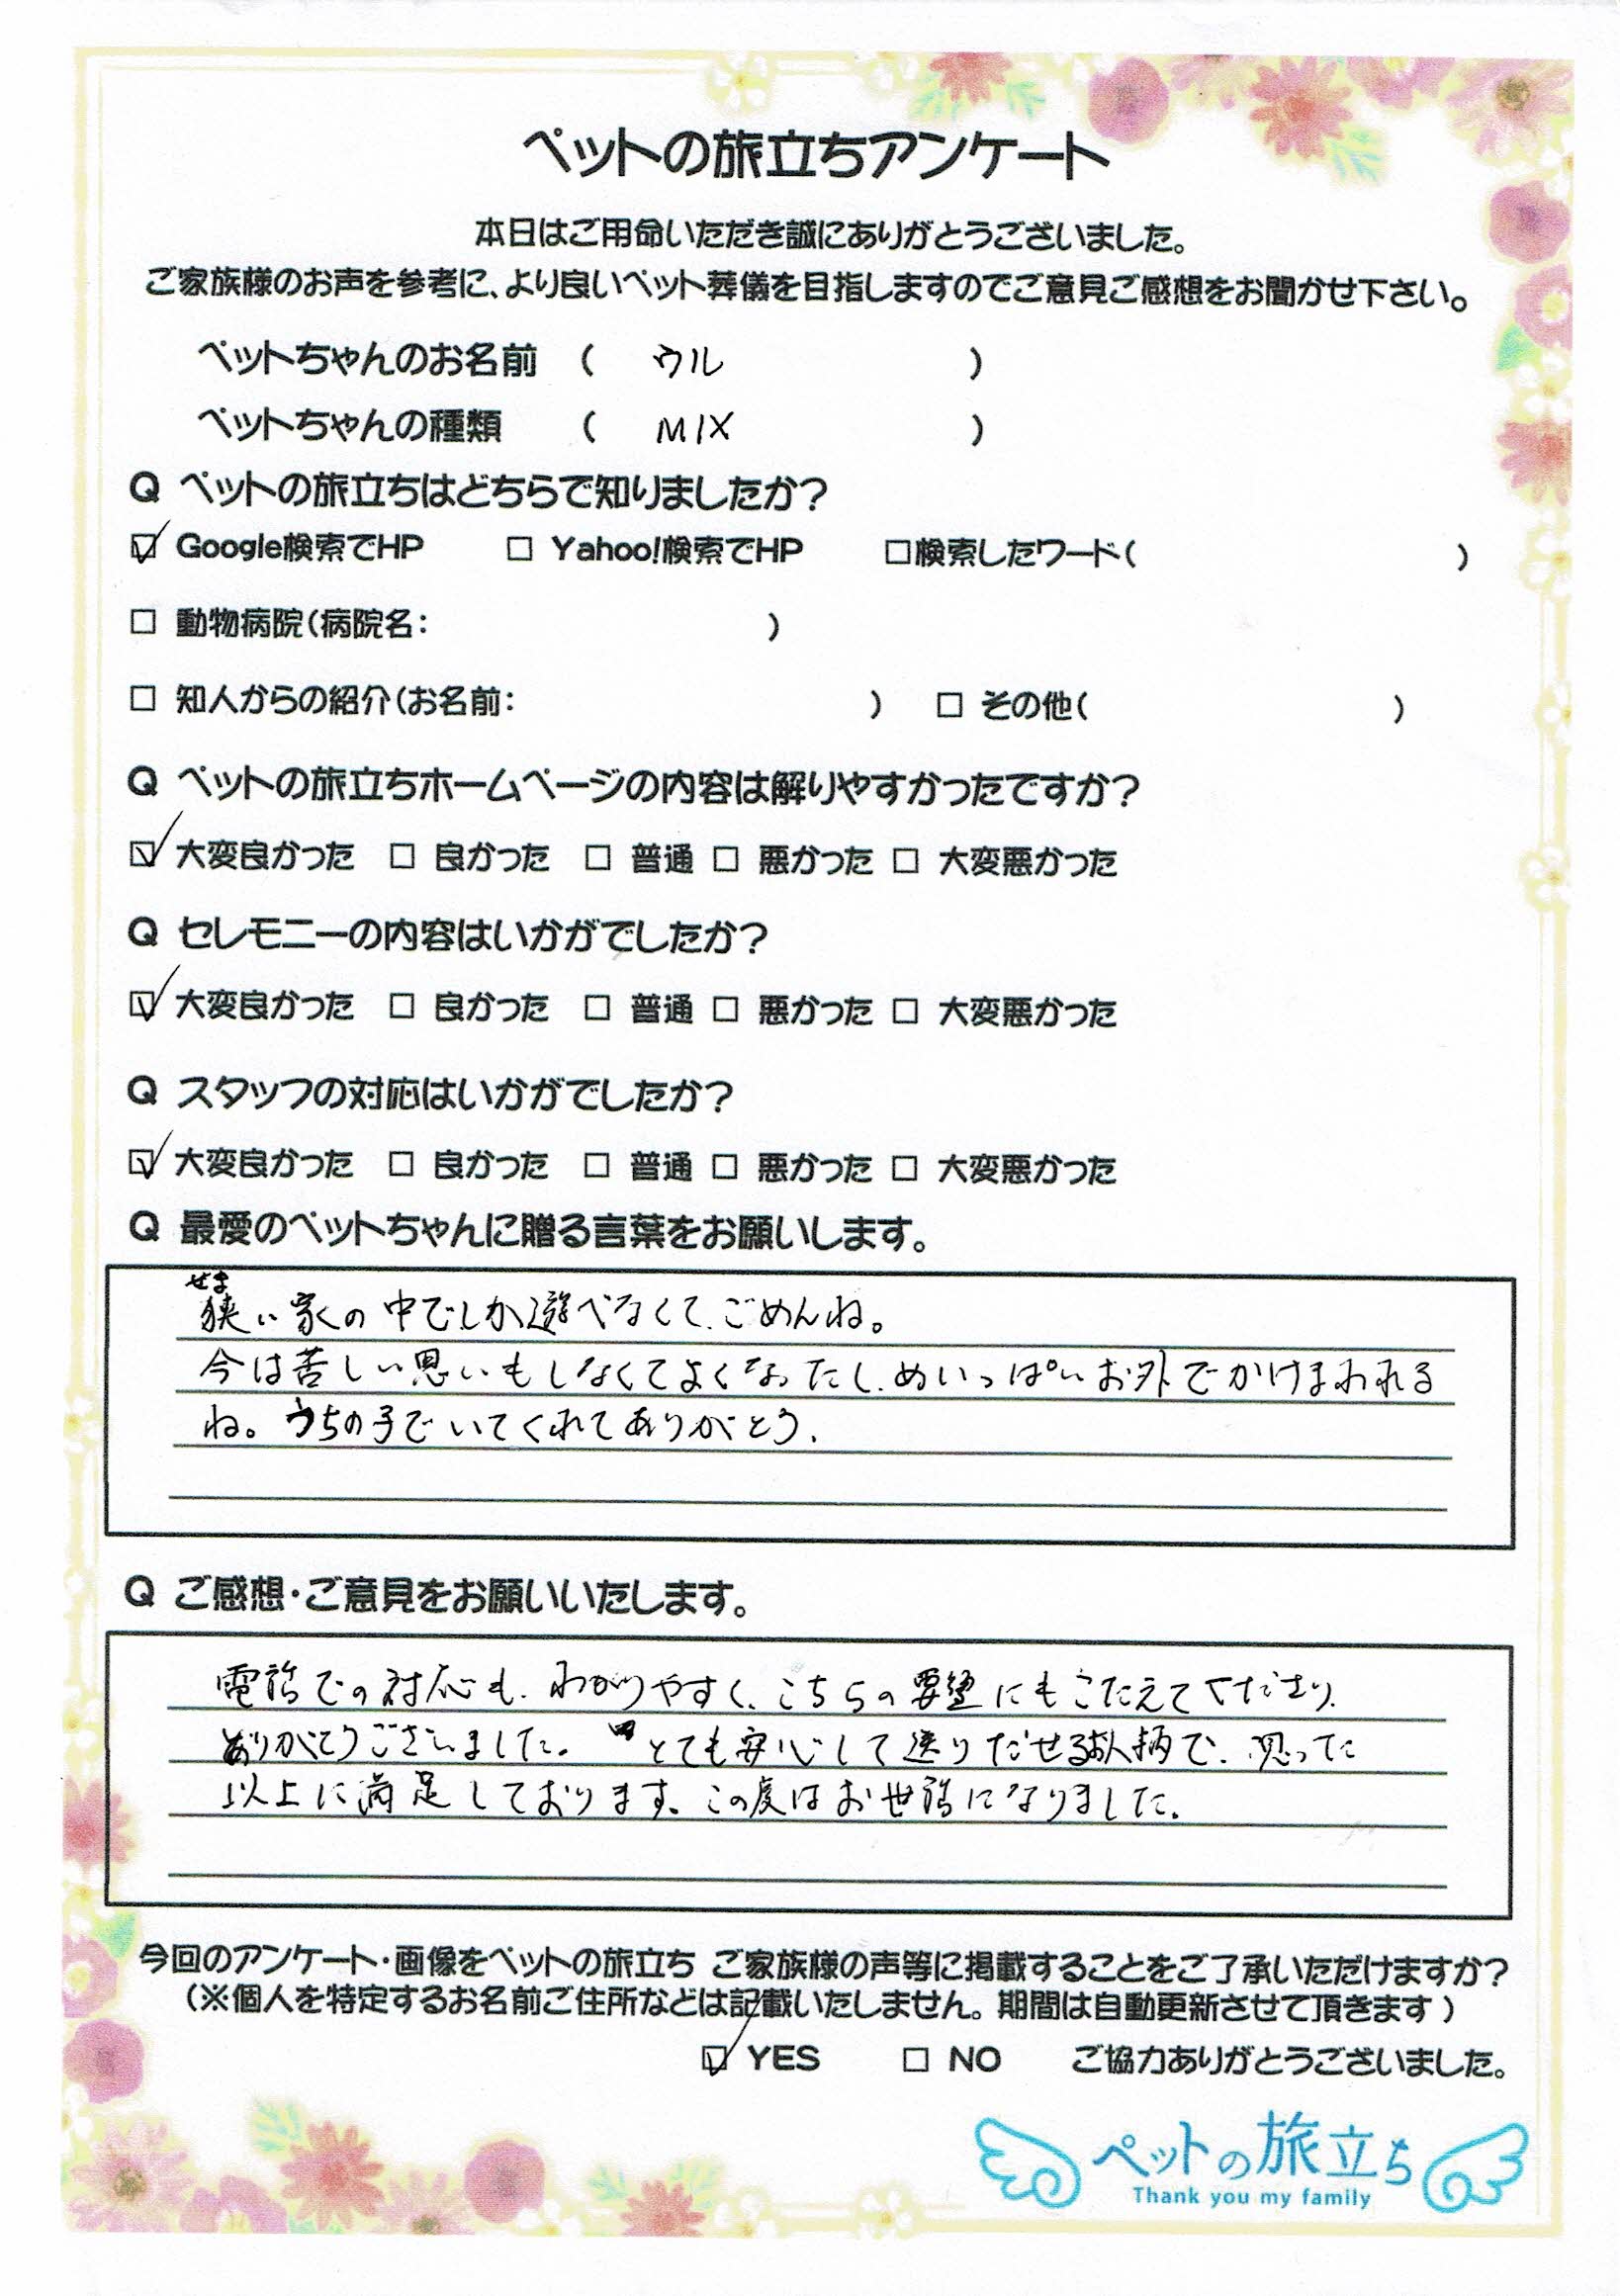 ペットの旅立ちアンケート
本日はご用命いただき誠にありがとうございました。
ご家族様のお声を参考に、より良いペット葬儀を目指しますのでご意見ご感想をお聞かせ下さい。
ペットちゃんのお名前 ( ウル )
ペットちゃんの種類 ( MIX )
Q ペットの旅立ちはどちらで知りましたか?
☑ Google検索でHP □ Yahoo!検索でHP □検索したワード( )
□ 動物病院(病院名: )
□ 知人からの紹介(お名前: ) □ その他( )
Q ペットの旅立ちホームページの内容は解りやすかったですか?
☑ 大変良かった □ 良かった □ 普通 □ 悪かった □ 大変悪かった
Q セレモニーの内容はいかがでしたか?
☑ 大変良かった □ 良かった □ 普通 □ 悪かった □ 大変悪かった
Q スタッフの対応はいかがでしたか?
☑ 大変良かった □ 良かった □ 普通 □ 悪かった □ 大変悪かった
Q 最愛のペットちゃんに贈る言葉をお願いします。
せま
狭い家の中でしか遊べなくて、ごめんね。
今は苦しい思いもしなくてよくなったし、めいっぱいお外でかけまわれる
ね。うちの子でいてくれてありがとう。
Q ご感想・ご意見をお願いいたします。
電話での対応も、わかりやすく、こちらの要望にもこたえてくださり、
ありがとうございました。とても安心して送りだせるお人柄で、思った
以上に満足しております。この度はお世話になりました。
今回のアンケート・画像をペットの旅立ち ご家族様の声等に掲載することをご了承いただけますか?
(※個人を特定するお名前ご住所などは記載いたしません。期間は自動更新させて頂きます)
☑ YES □ NO ご協力ありがとうございました。
ペットの旅立ち
Thank you my family